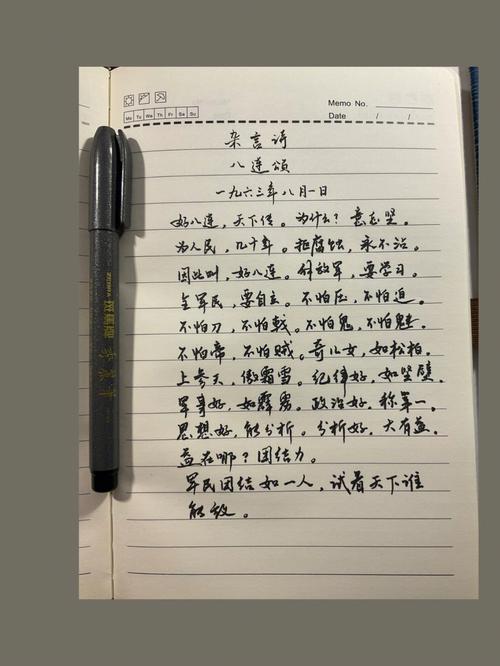 Memo No.
Mo Tu We Th Fr Sa Su
Date / /
杂言诗
八连颂
一九六三年八月一日
好八连，天下传。为什么？意志坚。
为人民，几十年。拒腐蚀，永不沾。
因此叫，好八连。解放军，要学习。
全军民，要自立。不怕压，不怕迫。
不怕刀，不怕戟。不怕鬼，不怕魅。
不怕帝，不怕贼。奇儿女，如松柏。
上参天，傲霜雪。纪律好，如坚壁。
军事好，如霹雳。政治好，称第一。
思想好，能分析。分析好，大有益。
益在哪？团结力。
军民团结如一人，试看天下谁
能敌。
ZEBRA 斑馬牌